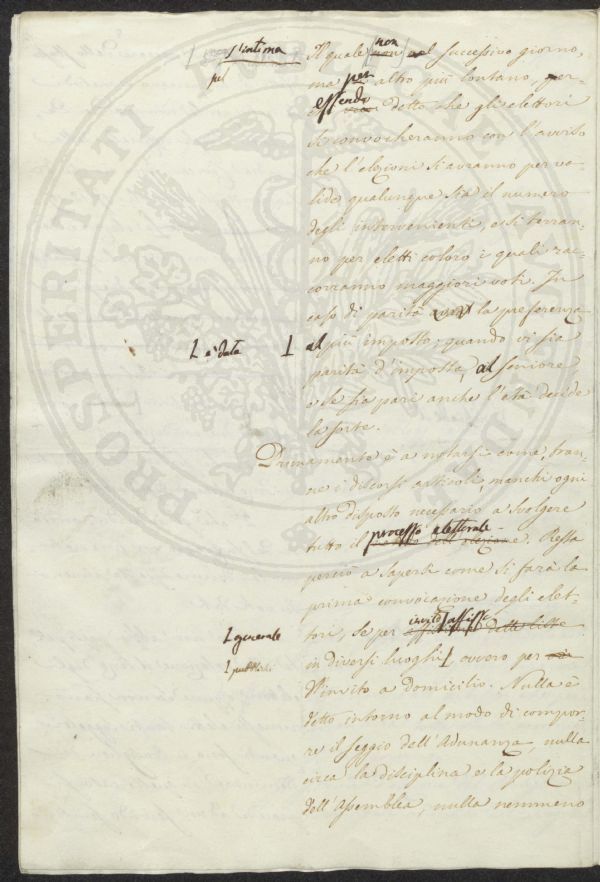 s'intima
Il quale non nel successivo giorno,
ma per altro più lontano, per
essendo detto che gli elettori
si convocheranno con l'avviso
che l'elezioni si avranno per va-
lide qualunque sia il numero
degli intervenienti, e si terran-
no per eletti coloro i quali rac-
corranno maggiori voti. In
caso di parità la preferenza
è data
al più imposto, quando vi sia
parità d'imposta, al seniore,
e se sia pari anche l'età decide
la sorte.
Primamente è a notarsi come, tran-
ne i discorsi articoli, manchi ogni
altro disposto necessario a svolgere
processo elettorale
tutto il. Resta
perciò a sapersi come si farà la
prima convocazione degli elet-
invito affisso
tori, se per delle liste
generale
in diversi luoghi, ovvero per
pubblici
l'invito a domicilio. Nulla è
detto intorno al modo di compor-
re il seggio dell'Adunanza, nulla
circa la disciplina e la polizia
dell'Assemblea, nulla nemmeno
PROSPERITATI